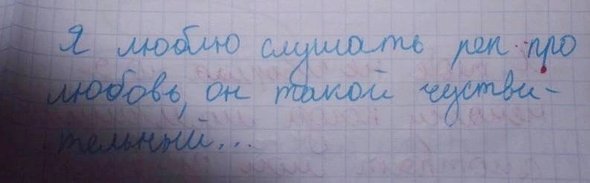 Я люблю слушать реп про
любовь, он такой чустви-
тельный...